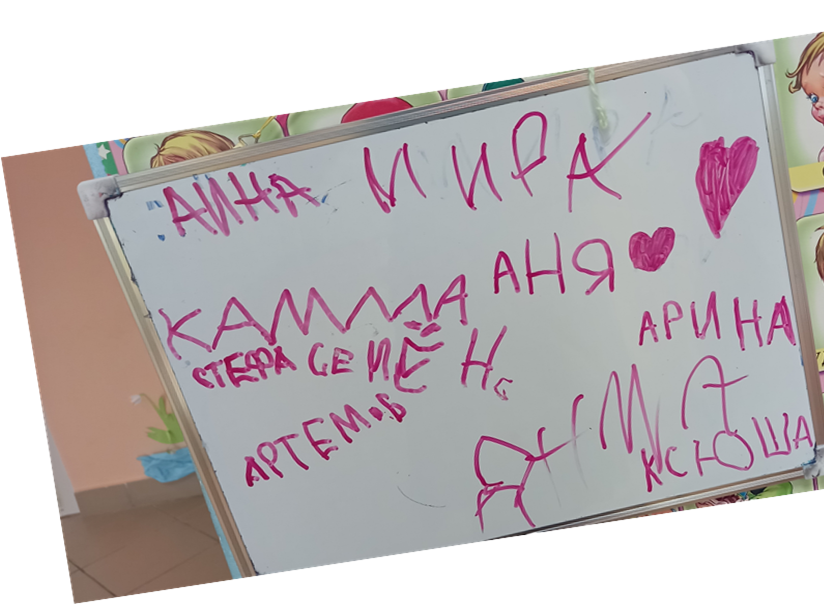 АИНА МИРА
АНЯ
КАМИЛА
АРИНА
СТЕФА СЕМЁН С
АРТЕМ.Б
ЯНИНА
КСЮША